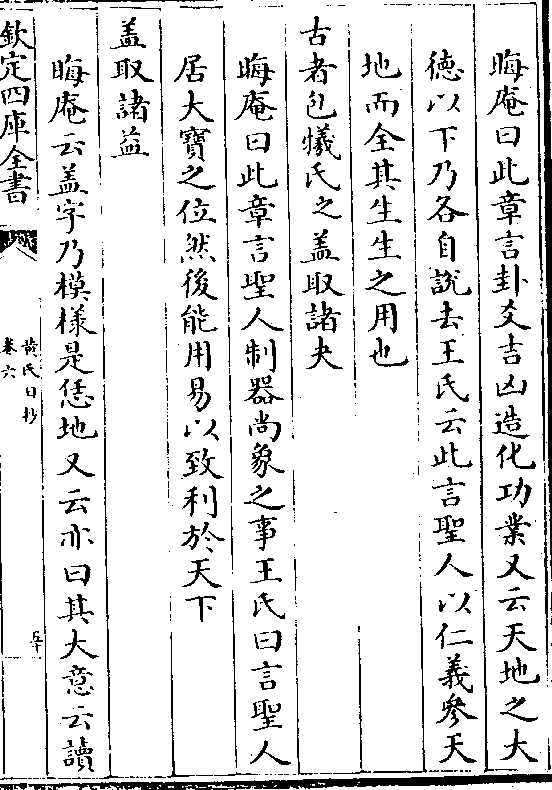 晦庵曰此章言卦爻吉凶造化功業又云天地之大
德以下乃各自說去王氏云此言聖人以仁義參天
地而全其生生之用也
古者包犧氏之蓋取諸夬
晦庵曰此章言聖人制器尚象之事王氏曰言聖人
居大寶之位然後能用易以致利於天下
盖取諸益
晦庵云盖字乃模樣是恁地又云亦曰其大意云讀
欽定四庫全書
黃氏日抄
卷六
五十